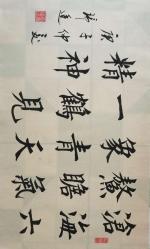 滄海六
鰲瞻氣
象青天
一鶴見
精神
庚子仲夏